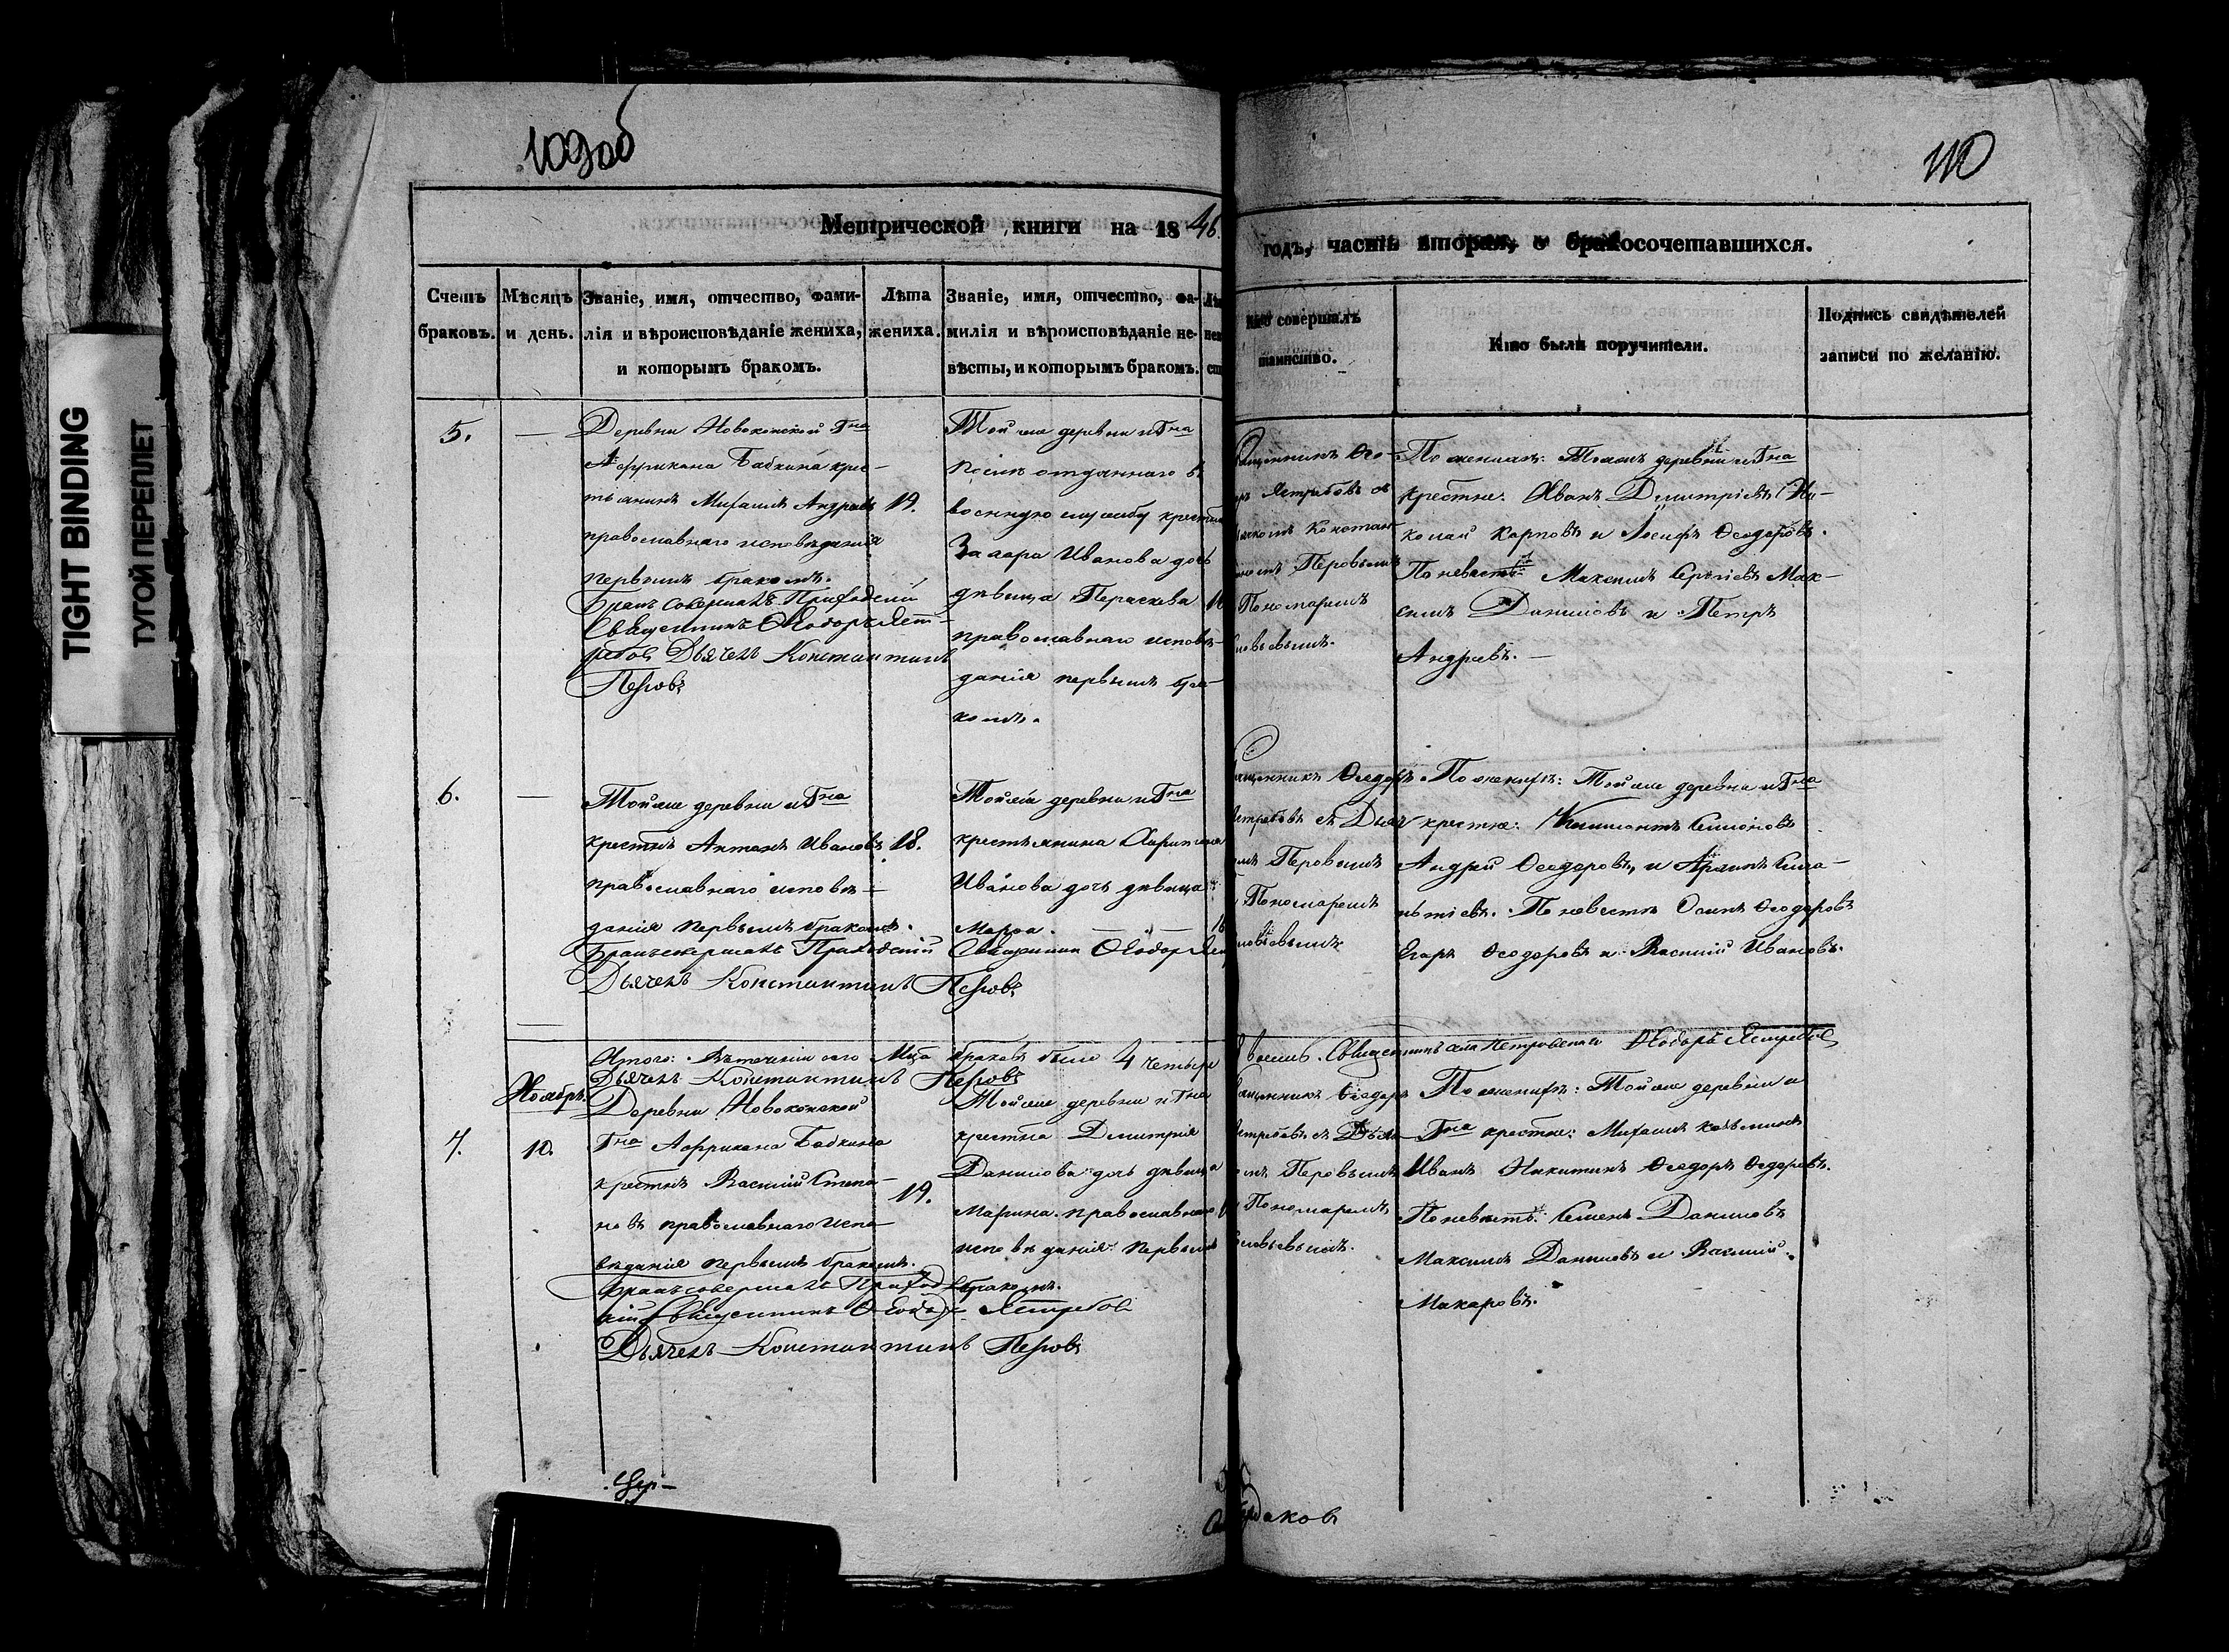 109об
110
TIGHT BINDING
ТУГОЙ ПЕРЕПЛЕТ
Метрической книги на 1846.
годъ, часть вторая, о бракосочетавшихся.
Счетъ браковъ.
Мѣсяцъ и день.
Званіе, имя, отчество, фами-
лія и вѣроисповѣданіе жениха,
и которымъ бракомъ.
Лѣта
жениха.
Званіе, имя, отчество, фа-
милія и вѣроисповѣданіе не-
вѣсты, и которымъ бракомъ.
Кто совершалъ
таинство.
Кто были поручители.
Подпись свидѣтелей
записи по желанію.
5.
Деревни Новоконской Гна
Аффрикана Бабкина крес-
тьянинъ Михаилъ Андреевъ
православнаго исповѣданія
первымъ бракомъ.
Бракъ совершалъ Приходскій
Священникъ Ѳеодоръ Яст-
ребов Дьячекъ Константинъ
Перовъ
19.
Той же деревни и Гна
послѣ отданнаго въ
военную службу
Захара Иванова дочь
дѣвица Параскева
православнаго исповѣ-
данія первымъ бра-
комъ.
Священникъ Ѳео-
Ястребовъ съ
Констан-
Перовымъ
Пономаремъ
По женихѣ: Тоже деревни и Гна
крестне: Иванъ Димитріевъ Ни-
колай Карповъ и Іосифъ Ѳеодоровъ.
По невестѣ Максимъ Сергіевъ Мак-
симъ Даниловъ и Петръ
Андреевъ.
6.
Той же деревни и Гна
крестнъ Антонъ Ивановъ
православнаго исповѣ-
данія первымъ бракомъ.
Бракъ совершалъ Приходскій Священник Ѳеодор
Дьячекъ Константинъ Перовъ
18.
Той же деревни и Гна
крестьянина Харитона
Иванова дочь дѣвица
Марѳа.
Священникъ Ѳеодоръ
Ястребовъ съ Дьяч
Перовымъ
Пономаремъ
По женихѣ: Той же деревни и Гна
крестне: Климонтъ Симоновъ
Андрей Ѳеодоровъ, и
По невестѣ Осипъ Ѳеодоровъ
Егоръ Ѳеодоровъ и Василій Ивановъ.
Итого: Въ теченіи сего Мца браковъ было 4 четыре
Священникъ села Петровскаго Ѳеодоръ Ястребов
Дьячекъ Константинъ Перовъ
Ноябрь.
7.
10.
Деревни Новоконской
Гна Аффрикана Бабкина
крестнъ Василій Степа-
новъ православнаго испо-
вѣданія первымъ бракомъ.
Бракъ совершалъ Приход
скій Священникъ Ѳеодоръ Ястребов
Дьячекъ Константинъ Перовъ
19.
Той же деревни и Гна
крестна Димитрія
Данилова дочь дѣвица
Марина православнаго
исповѣданія первымъ
бракомъ.
Священникъ Ѳеодоръ
Ястребовъ съ Дьяч
Перовымъ
и Пономаремъ
По женихѣ: Той же деревни и
Гна крестне: Михаилъ Козьминъ
Иванъ Никитинъ Ѳеодоръ Ѳедоровъ.
По невестѣ Семенъ Даниловъ
Максимъ Даниловъ и Василій
Макаровъ.